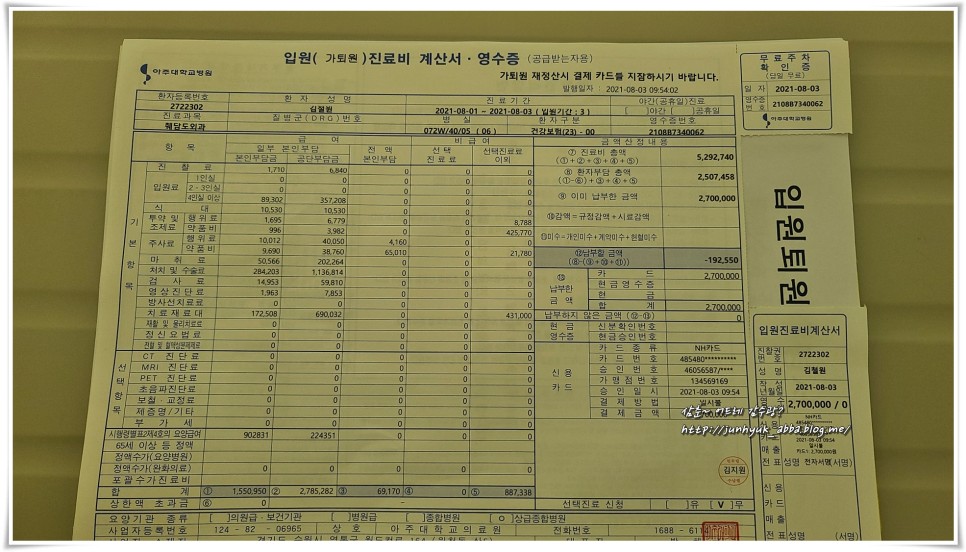 입원( 가퇴원 )진료비 계산서 · 영수증 (공급받는자용)
아주대학교병원
가퇴원 재정산시 결제 카드를 지참하시기 바랍니다.
발행일자 : 2021-08-03 09:54:02
환자등록번호 환 자 성 명 진 료 기 간 야간(공휴일)진료
2722302 김철원 2021-08-01 ~ 2021-08-03 ( 입원기간 : 3 ) [ ]야간 [ ]공휴일
진료과목 질 병 군 ( D R G ) 번 호 병 실 환 자 구 분 영수증번호
췌담도외과 072W/40/05 ( 06 ) 건강보험(23) - 00 2108B7340062
항 목 급 여 비 급 여 금 액 산 정 내 용
일부 본인부담 전 액 본인부담 선택 진료료 선택진료료 이외
본인부담금 공단부담금
기본항목
진 찰 료 1,710 6,840 0 0 0
입원료 1인실 0 0 0 0 0
2 - 3인실 0 0 0 0 0
4인실 이상 89,302 357,208 0 0 0
식 대 10,530 10,530 0 0 0
투약 및 조제료 행위료 1,695 6,779 0 0 8,788
약품비 996 3,982 0 0 425,770
주사료 행위료 10,012 40,050 4,160 0 0
약품비 9,690 38,760 65,010 0 21,780
마 취 료 50,566 202,264 0 0 0
처치 및 수술료 284,203 1,136,814 0 0 0
검 사 료 14,953 59,810 0 0 0
영상진단료 1,963 7,853 0 0 0
방사선치료료 0 0 0 0 0
치료재료대 172,508 690,032 0 0 431,000
재활 및 물리치료료 0 0 0 0 0
정신요법료 0 0 0 0 0
전혈 및 혈액성분제제료 0 0 0 0 0
선택항목
CT 진단료 0 0 0 0 0
MRI 진단료 0 0 0 0 0
PET 진단료 0 0 0 0 0
초음파진단료 0 0 0 0 0
보철 · 교정료 0 0 0 0 0
제증명/기타 0 0 0 0 0
부 가 세 0 0 0 0 0
시행령별표2제4호의 요양급여 902831 224351 0 0 0
65세 이상 등 정액
정액수가(요양병원)
정액수가(완화의료) 0 0 0 0 0
포괄수가진료비
합 계 ① 1,550,950 ② 2,785,282 ③ 69,170 ④ 0 ⑤ 887,338
상한액 초과금 ⑥ 0 - 선택진료 신청 [ ]유 [ V ]무
⑦ 진료비 총액 (①+②+③+④+⑤) 5,292,740
⑧ 환자부담 총액 (①-⑥)+③+④+⑤ 2,507,458
⑨ 이미 납부한 금액 2,700,000
⑩감액=규정감액+시료감액
⑪미수=개인미수+계약미수+헌혈미수
⑫납부할 금액 (⑧-(⑨+⑩+⑪)) -192,550
⑬ 납부한 금액 카 드 2,700,000
현금영수증
현 금
합 계 2,700,000
납부하지 않은 금액 (⑫-⑬) 0
현 금 영수증 신분확인번호
현금승인번호
신 용 카 드 카드종류 NH카드
카드번호 485480**********
승인번호 46056587/****
가맹점번호 134569169
승인일시 2021-08-03 09:54
결제방법 일시불
결제금액
김지원
요양기관 종류 [ ]의원급 · 보건기관 [ ]병원급 [ ]종합병원 [ O ]상급종합병원
사업자등록번호 124 - 82 - 06965 상 호 아주대학교의료원 전화번호 1688 - 61
무료주차 확인증
(당일 무료)
일 자 2021-08-03
영수증 번 호 2108B7340062
아주대학교병원
입원퇴원
입원진료비계산서
진찰권 번 호 2722302
성 명 김철원
작 성 년월일 2021-08-03
영 수 2,700,000 / 0
신 용 카 드 매 출 전 표
NH카드
2021-08-03 09:54
일시불
카드1: 2,700,000원
성명 전자서명(서명)
신 용
카 드
매 출
전 표 성명 (서명)
http://junhyuk_abba.blog.me/